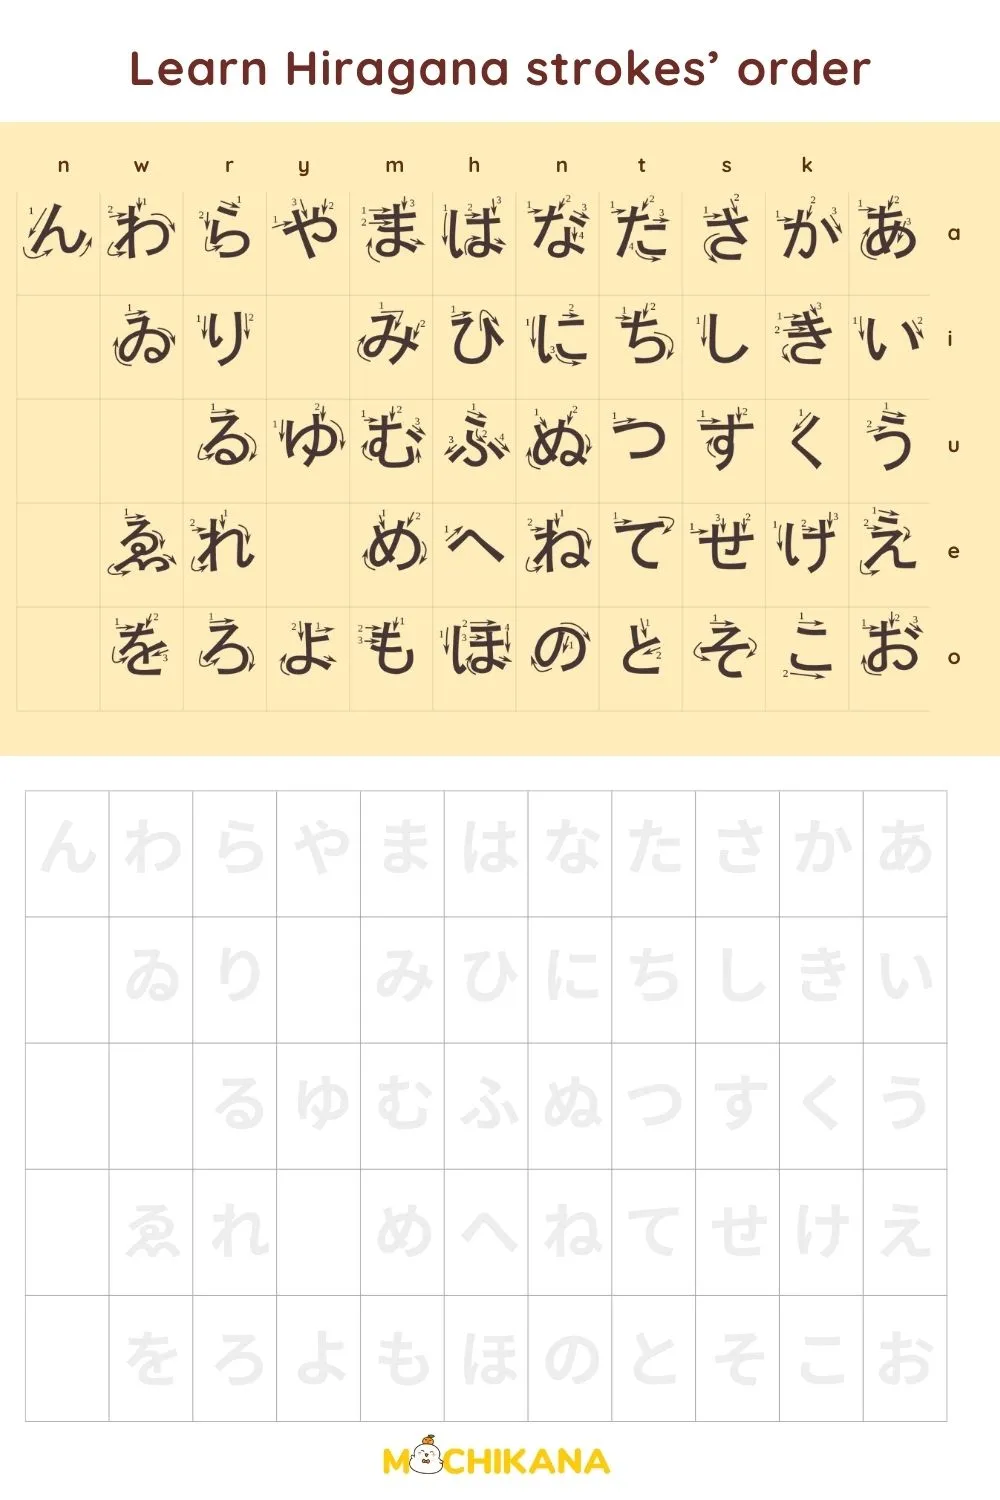 Learn Hiragana strokes’ order
n w r y m h n t s k
ん わ ら や ま は な た さ か あ a
ゐ り み ひ に ち し き い i
る ゆ む ふ ぬ つ す く う u
ゑ れ め へ ね て せ け え e
を ろ よ も ほ の と そ こ お o
ん わ ら や ま は な た さ か あ
ゐ り み ひ に ち し き い
る ゆ む ふ ぬ つ す く う
ゑ れ め へ ね て せ け え
を ろ よ も ほ の と そ こ お
MOCHIKANA